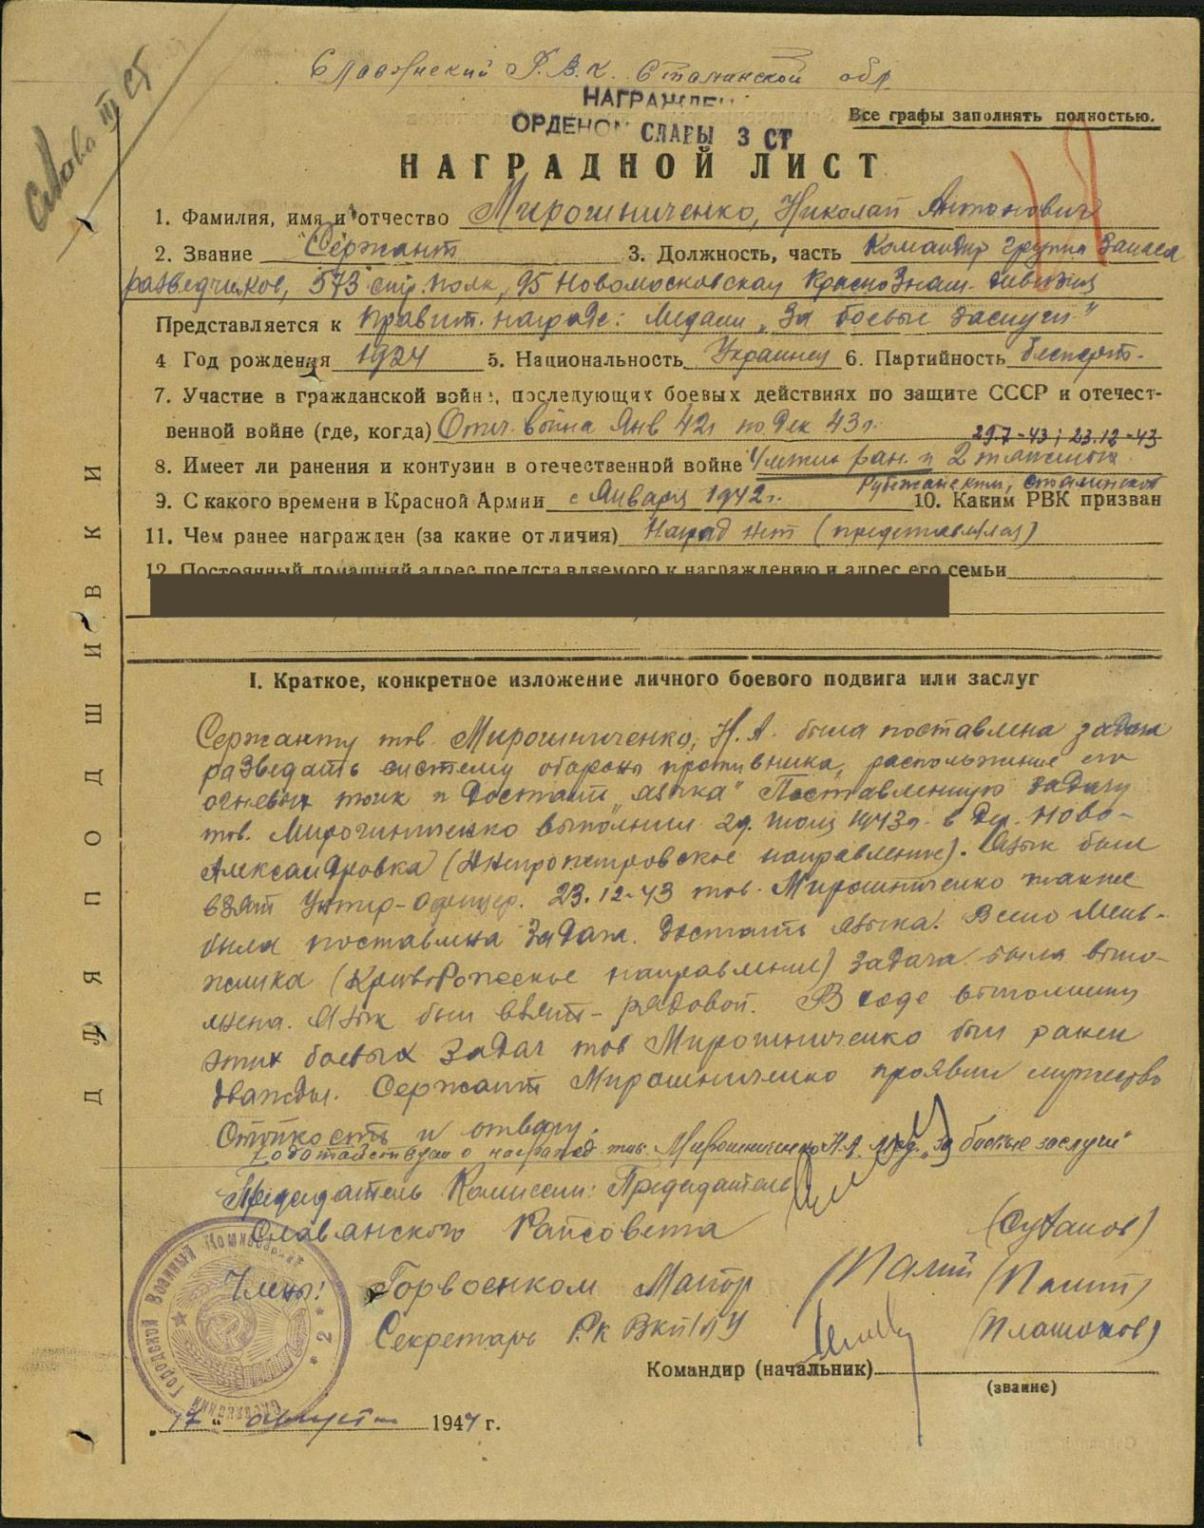 Слава III ст
Славянский Г.В.К. Сталинской обл
НАГРАЖДЕН
ОРДЕНОМ СЛАВЫ 3 СТ
Все графы заполнять полностью.
НАГРАДНОЙ ЛИСТ
1. Фамилия, имя и отчество Мирошниченко, Николай Антонович
2. Звание Сержант 3. Должность, часть Командир группы Запаса
разведчиков, 573 стр. полк, 95 Новомосковская Краснознам. дивизия
Представляется к правит. награде: Медали „За боевые заслуги"
4 Год рождения 1924 5. Национальность Украинец 6. Партийность беспарт.
7. Участие в гражданской войне, последующих боевых действиях по защите СССР и отечест-
венной войне (где, когда) Отеч. война Янв 42г по Дек 43г.
29.7-43; 23.12-43
8. Имеет ли ранения и контузии в отечественной войне ран. и 2 тяжелых
Сталинской
9. С какого времени в Красной Армии с Января 1942г. 10. Каким РВК призван
11. Чем ранее награжден (за какие отличия) Наград нет (представлялся)
12. Постоянный домашний адрес представляемого к награждению и адрес его семьи
ДЛЯ ПОДШИВКИ
I. Краткое, конкретное изложение личного боевого подвига или заслуг
Сержанту тов. Мирошниченко, Н. А. была поставлена задача
разведать систему обороны противника, расположение его
огневых точек и достать „языка" Поставленную задачу
тов. Мирошниченко выполнил 29. июля 1943г. в дер. Ново-
Александровка (Днепропетровское направление). Язык был
взят Унтер-офицер. 23.12-43 тов. Мирошниченко также
была поставлена задача. Достать языка!
(Криворожское направление) задача была выпо-
лнена. Язык был взят - рядовой. В ходе выполнения
этих боевых задач тов Мирошниченко был ранен
дважды. Сержант Мирошниченко проявил мужество
Стойкость и отвагу.
Ходатайствуем о награжд тов. Мирошниченко Н.А. Мед. „За боевые заслуги"
Председатель Комиссии: Председатель
Славянского Райсовета (Суханов)
Члены: Горвоенком Майор Палий (Палий)
Секретарь Рк ВКП/б/У (Плашоков)
Командир (начальник)
(звание)
„17" августа 1947 г.